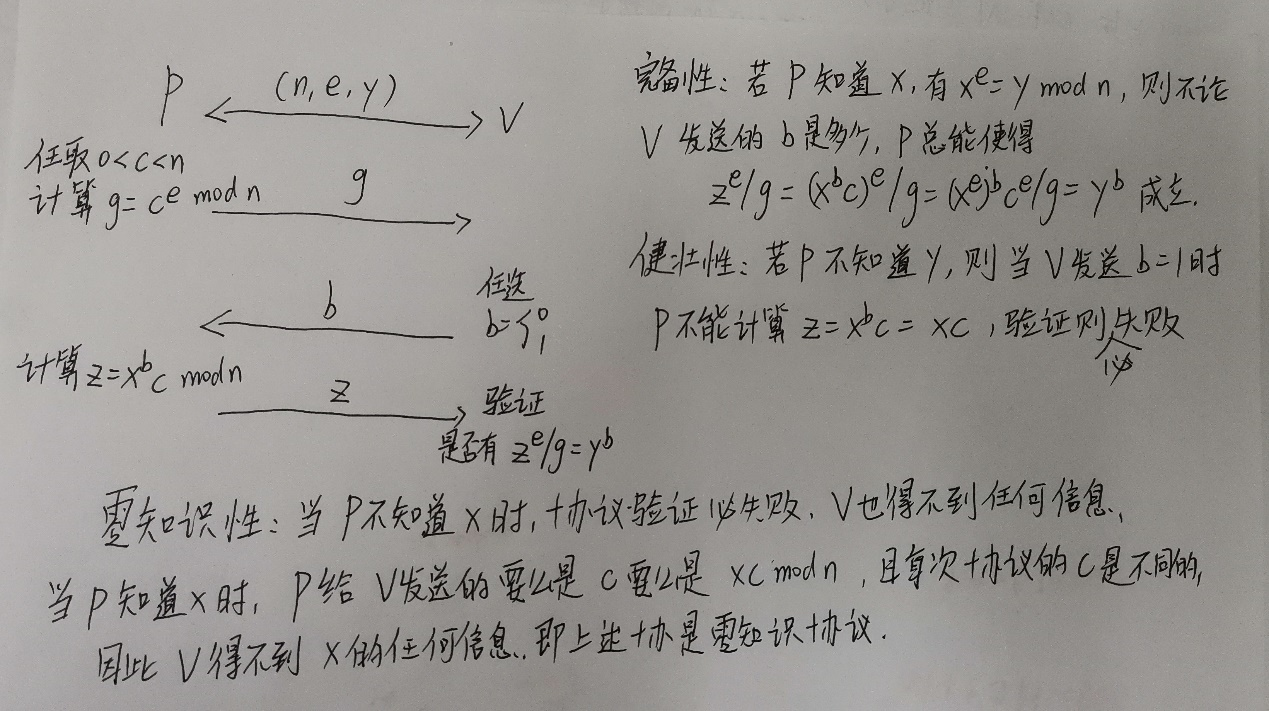 P (n, e, y) V
任取 0<c<n
计算 g=c^e mod n g
b 任选
b={0 1
计算 z=x^b c mod n
z 验证
是否有 z^e/g=y^b
完备性：若 P 知道 x，有 x^e=y mod n，则不论
V 发送的 b 是多少，P 总能使得
z^e/g=(x^b c)^e/g=(x^e)^b c^e/g=y^b 成立.
健壮性：若 P 不知道 y，则当 V 发送 b=1 时
P 不能计算 z=x^b c=xc，验证则必失败
零知识性：当 P 不知道 x 时，协议验证必失败，V 也得不到任何信息，
当 P 知道 x 时，P 给 V 发送的要么是 c 要么是 xc mod n，且每次协议的 c 是不同的，
因此 V 得不到 x 的任何信息，即上述协是零知识协议.